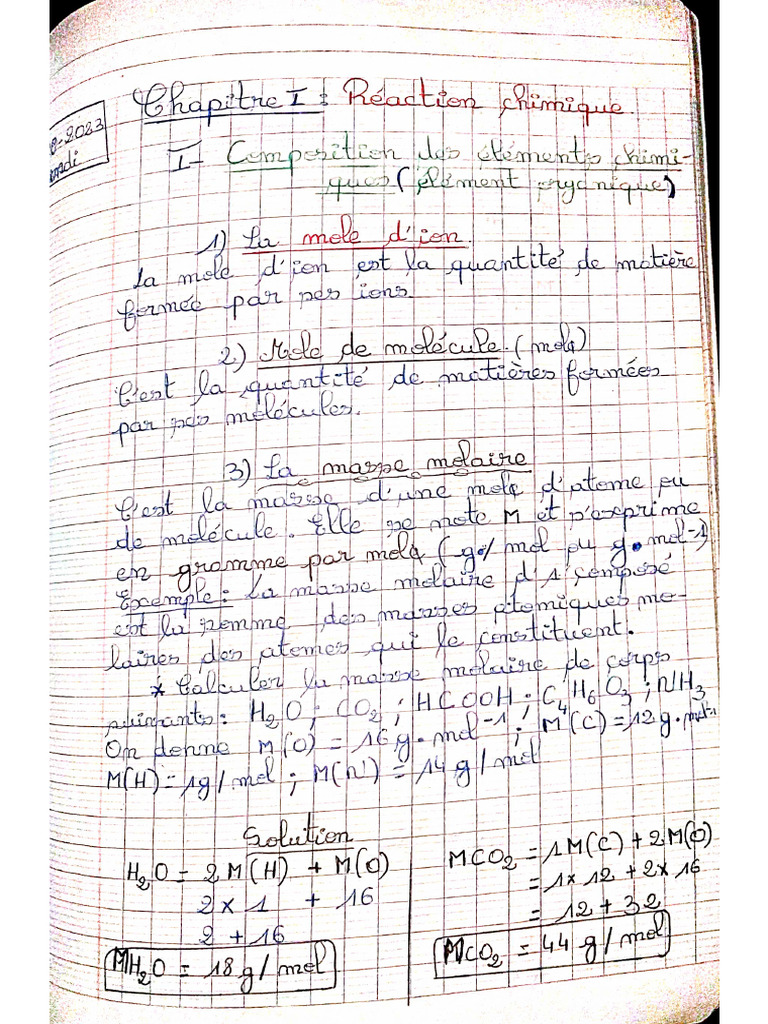 Chapitre I : Réaction chimique.
8-2023
I- Composition des éléments chimi-
ques (élément organique)
1) La mole d'ion
La mole d'ion est la quantité de matière
formée par ses ions.
2) Mole de molécule. (mole)
C'est la quantité de matières formées
par ses molécules.
3) La masse molaire
C'est la masse d'une mole d'atome ou
de molécule. Elle se note M et s'exprime
en gramme par mole (g/mol ou g.mol-1)
Exemple : La masse molaire d'1 composé
est la somme des masses atomiques mo-
laires des atomes qui le constituent.
* Calculer la masse molaire de corps
suivants : H₂O ; CO₂ ; HCOOH ; C₄H₆O₃ ; NH₃
On donne M(O) = 16 g.mol⁻¹ ; M(C) = 12 g.mol⁻¹
M(H) = 1g/mol ; M(N) = 14 g/mol
Solution
H₂O = 2M(H) + M(O)
2 x 1 + 16
2 + 16
MH₂O = 18 g/mol
MCO₂ = 1M(C) + 2M(O)
= 1 x 12 + 2 x 16
= 12 + 32
MCO₂ = 44 g/mol